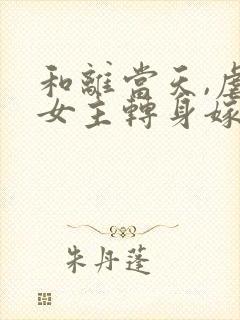 和離當天,虐
女主轉身嫁
朱丹蓬